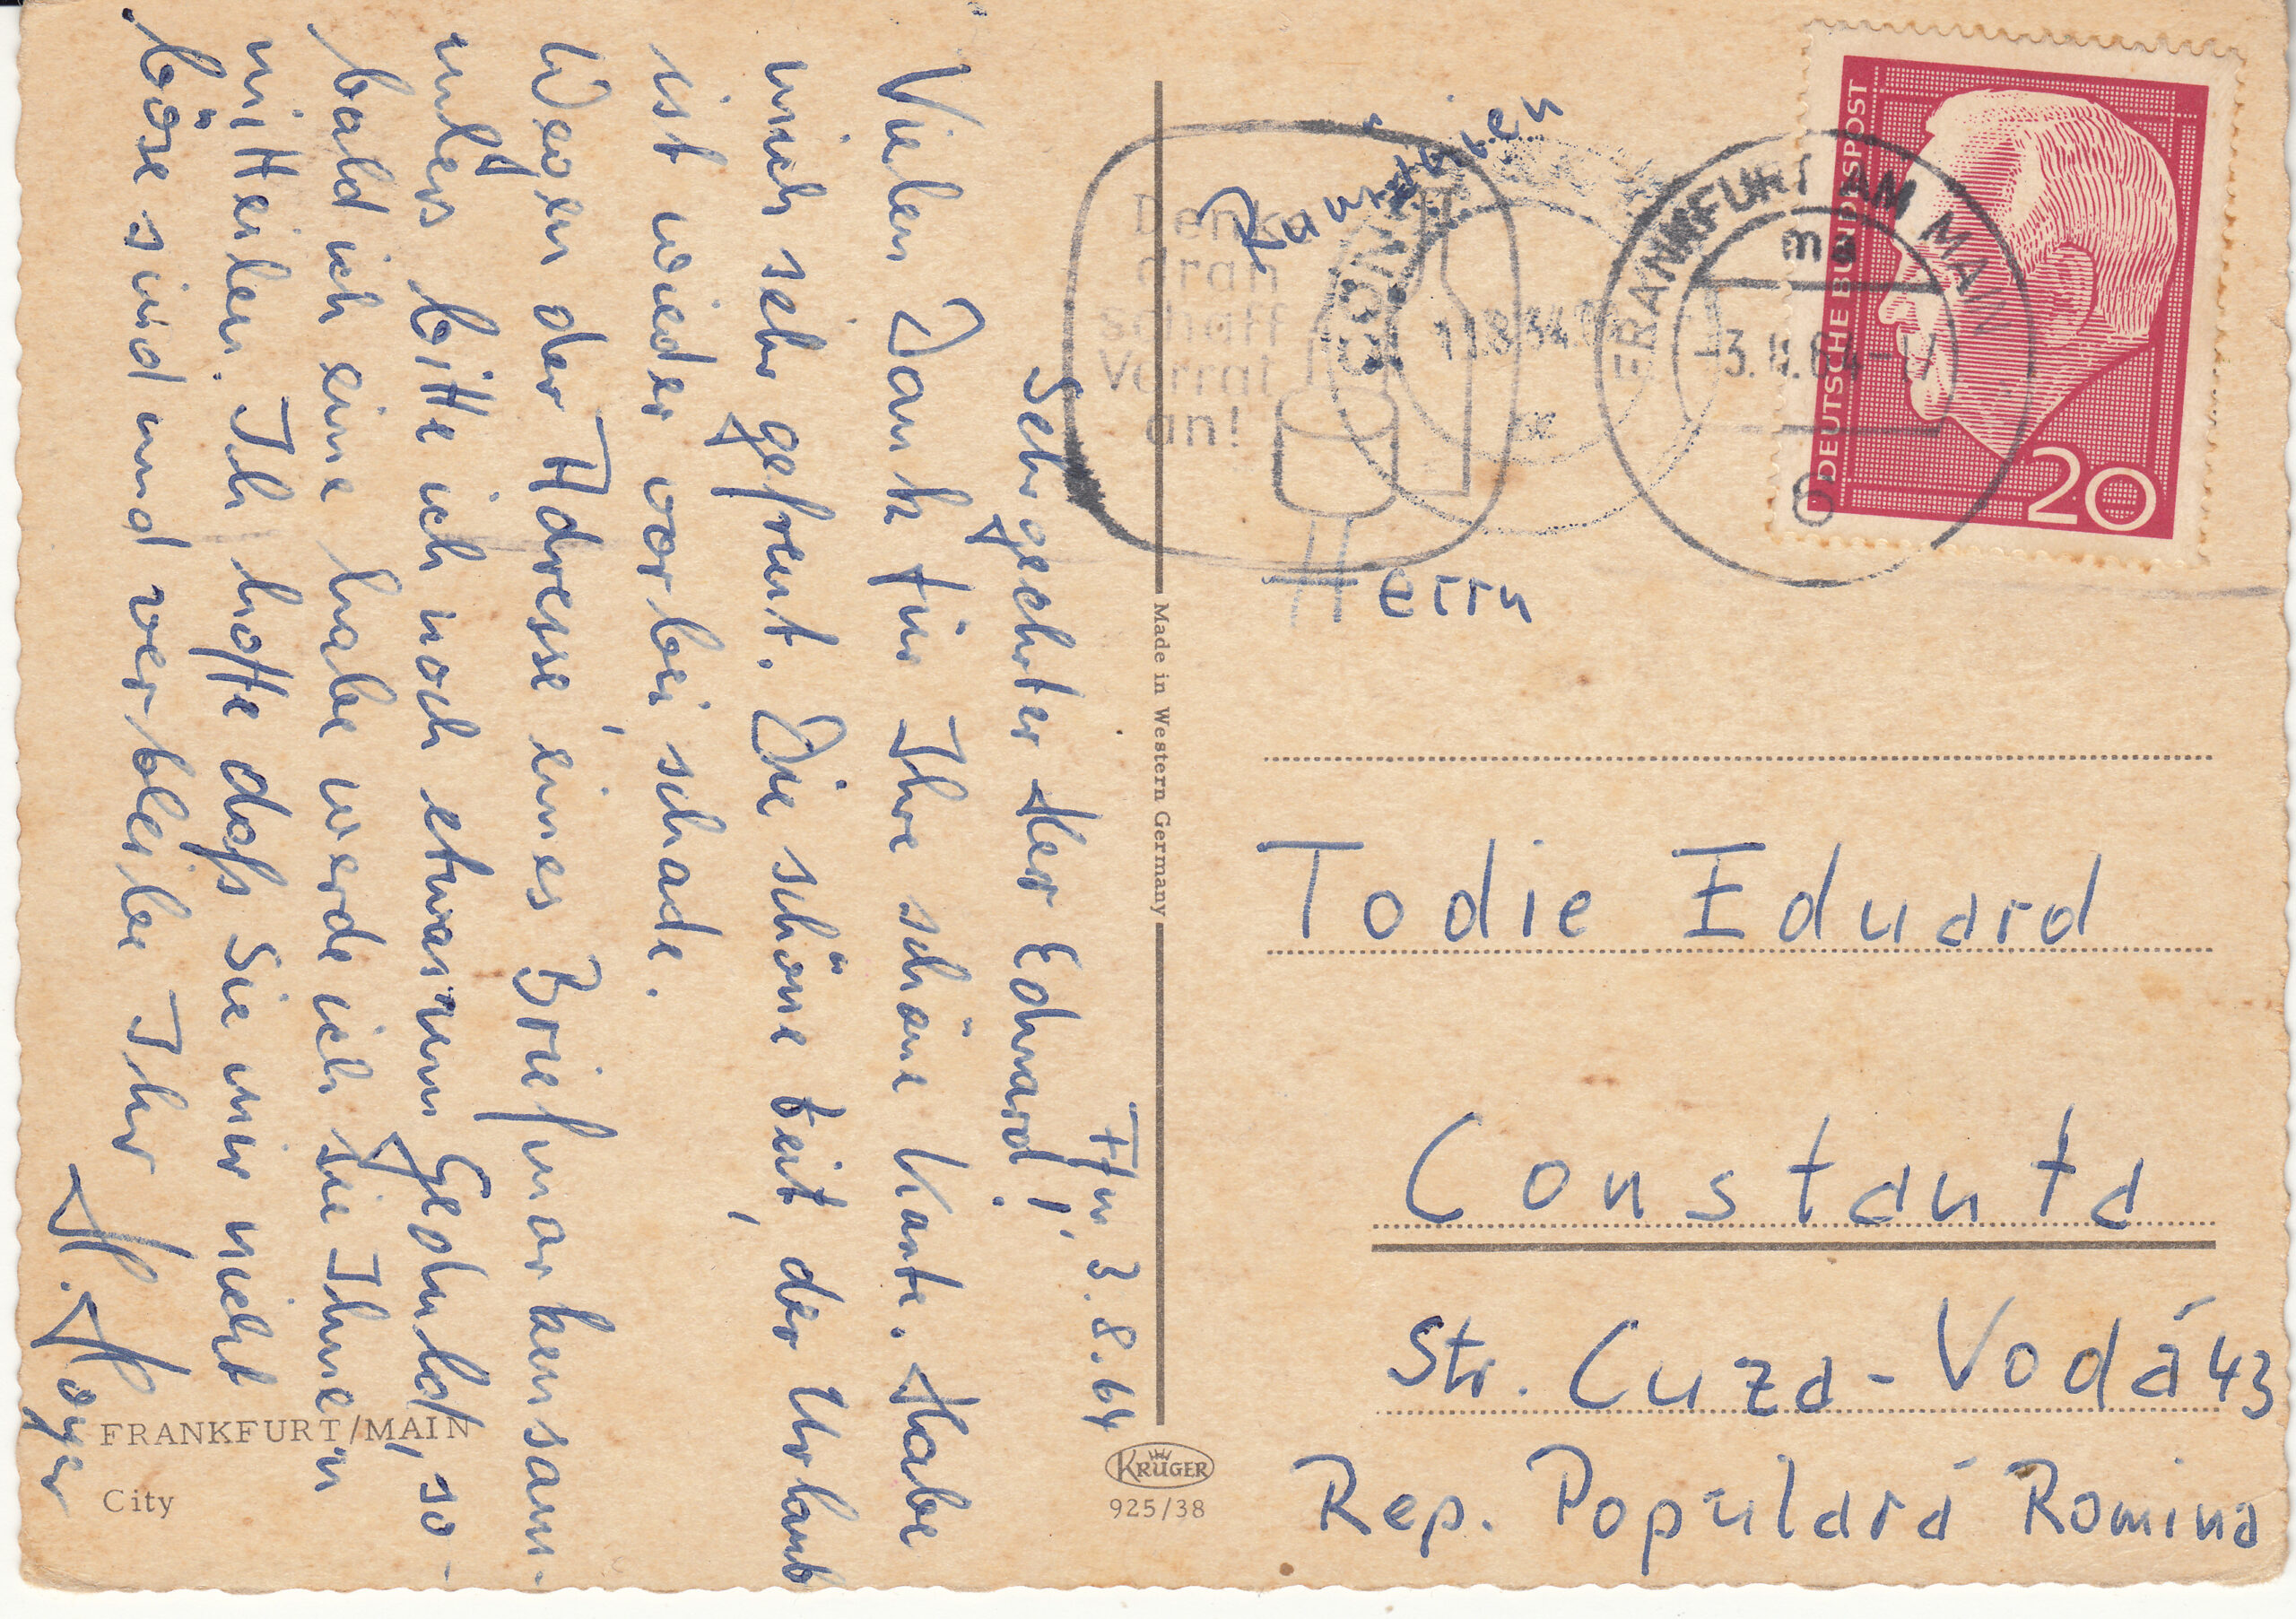 Ffm 3.8.64
Sehr geehrter Herr Eduard!
Vielen Dank für Ihre schöne Karte. Habe
mich sehr gefreut. Die schöne Zeit, der Urlaub
ist wieder vorbei, schade.
Wegen der Adresse eines Briefmarkensam-
mlers bitte ich noch etwas um Geduld, so-
bald ich eine habe werde ich sie Ihnen
mitteilen. Ich hoffe daß Sie mir nicht
böse sind und verbleibe Ihr
FRANKFURT/MAIN
City
Made in Western Germany
KRÜGER
925/38
DEUTSCHE BUNDESPOST
20
FRANKFURT AM MAIN
6
Denk
dran
schaff
Vorrat
an!
Todie Eduard
Constanta
Str. Cuza-Vodá 43
Rep. Populará Romina